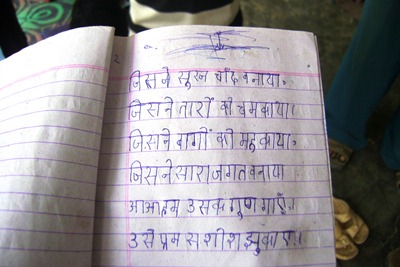 जिसने सूरज चाँद बनाया।
जिसने तारों को चमकाया।
जिसने बागों को महकाया।
जिसने सारा जगत बनाया
आओ हम उसके गुण गाएँ।
उसे प्रेम से शीश झुकाएं।